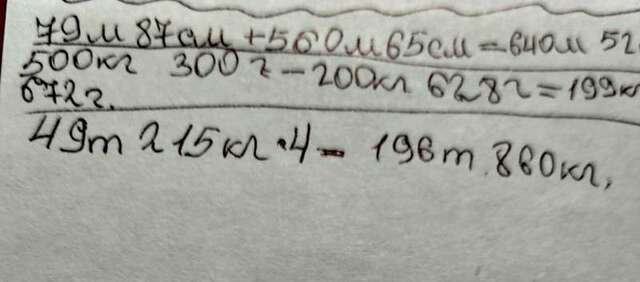 79м 87см + 560м 65см = 640м 52
500кг 300г - 200кг 628г = 199кг
672г.
49т 215кг · 4 - 196т 860кг,